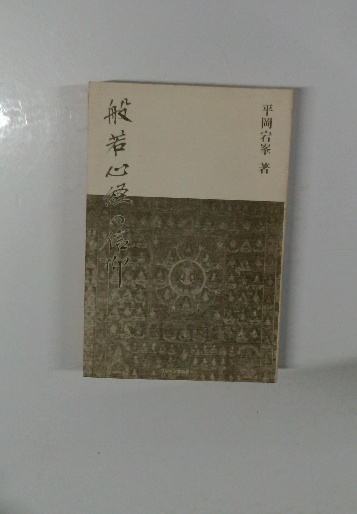 平岡宕峯 著
般若心経の信仰